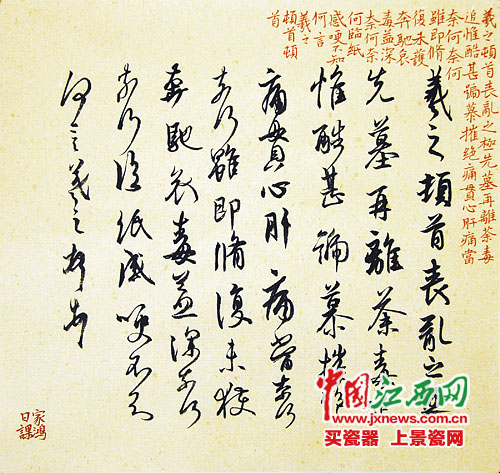 羲之頓首丧亂之極先墓再離荼毒
追惟酷甚號慕摧絕痛貫心肝痛當
奈何奈何
雖即脩
復未獲
奔馳哀
毒益深
奈何奈
何臨紙
感哽不知
何言
羲之
頓首頓
首
羲之頓首丧亂之極
先墓再離荼毒追
惟酷甚號慕摧絕
痛貫心肝痛當奈何
奈何雖即脩復未獲
奔馳哀毒益深奈何
奈何臨紙感哽不知
何言羲之頓首頓首
家鴻
日課
中国江西网
www.jxnews.com.cn
买瓷器 上景瓷网